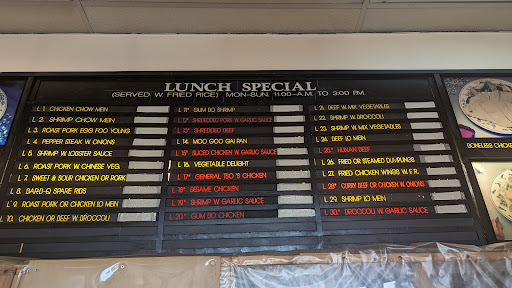 LUNCH SPECIAL
(SERVED W. FRIED RICE) MON-SUN, 11:00-A.M. TO 3:00 P.M.
L 1. CHICKEN CHOW MEIN
L 2. SHRIMP CHOW MEIN
L 3. ROAST PORK EGG FOO YOUNG
L 4. PEPPER STEAK W. ONIONS
L 5. SHRIMP W. LOBSTER SAUCE
L 6. ROAST PORK W. CHINESE VEG.
L 7. SWEET & SOUR CHICKEN OR PORK
L 8. BAR-B-Q SPARE RIBS
L 9. ROAST PORK OR CHICKEN LO MEIN
L 10. CHICKEN OR BEEF W. BROCCOLI
L 11* GUM BO SHRIMP
L 12* SHREDDED PORK W. GARLIC SAUCE
L 13* SHREDDED BEEF
L 14. MOO GOO GAI PAN
L 15* SLICED CHICKEN W. GARLIC SAUCE
L 16. VEGETABLE DELIGHT
L 17* GENERAL TSO'S CHICKEN
L 18* SESAME CHICKEN
L 19* SHRIMP W. GARLIC SAUCE
L 20* GUM BO CHICKEN
L 21. BEEF W. MIX VEGETABLES
L 22. SHRIMP W. BROCCOLI
L 23. SHRIMP W. MIX VEGETABLES
L 24. BEEF LO MEIN
L 25* HUNAN BEEF
L 26. FRIED OR STEAMED DUMPLINGS
L 27. FRIED CHICKEN WINGS W. F.R.
L 28* CURRY BEEF OR CHICKEN W. ONIONS
L 29. SHRIMP LO MEIN
L 30* BROCCOLI W. GARLIC SAUCE
BONELESS CHICKEN